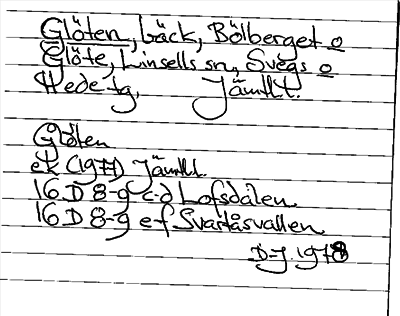 Glöten, bäck, Bölberget o
Glöte, Linsells sn, Svegs o
Hede tg, Jämtl.
Glöten
ek (1971) Jämtl.
16 D 8-9 c-d Lofsdalen
16 D 8-9 e-f Svartåsvallen
D-J. 1978